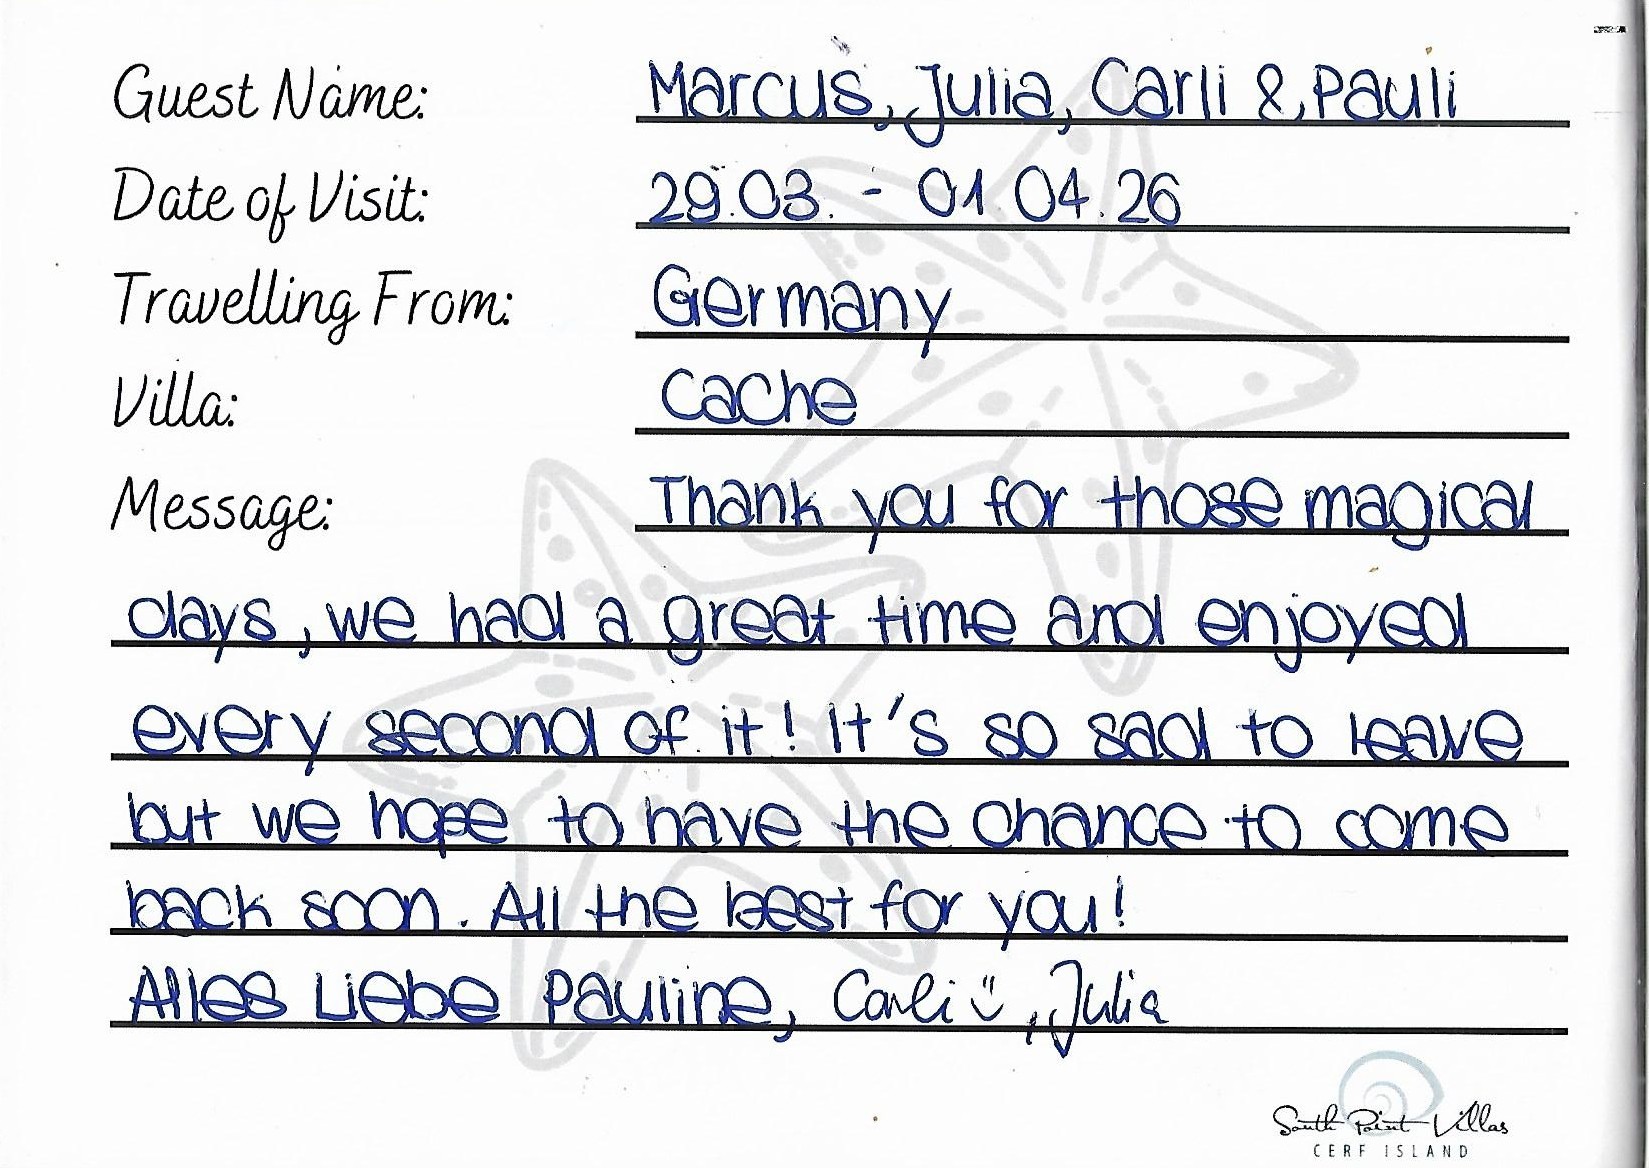 Guest Name: Marcus, Julia, Carli & Pauli
Date of Visit: 29.03. - 01.04.26
Travelling From: Germany
Villa: Cache
Message: Thank you for those magical
days, we had a great time and enjoyed
every second of it! It's so sad to leave
but we hope to have the chance to come
back soon. All the best for you!
Alles Liebe Pauline, Carli, Julia
South Point Villas
CERF ISLAND